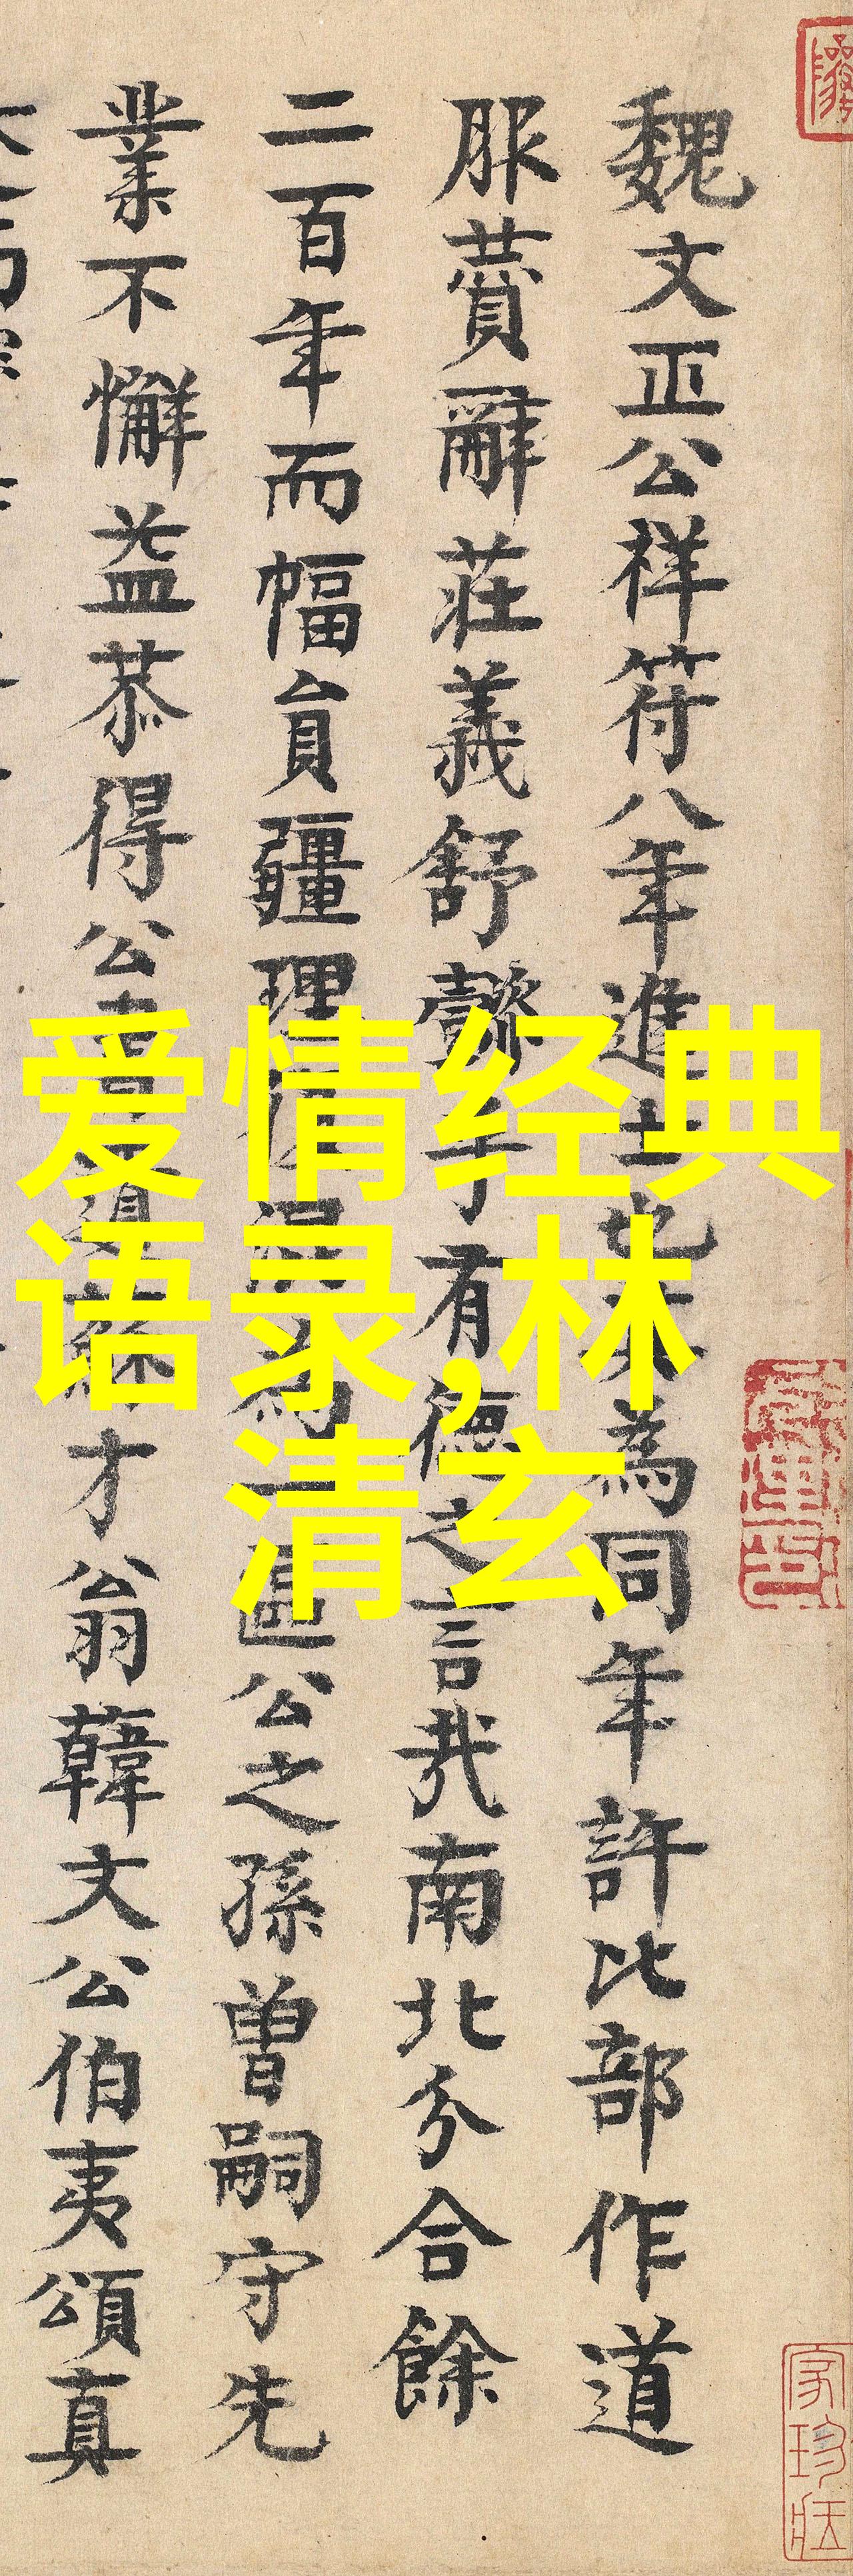 魏文正公祥符八年進士也為同年許比部作道
服賛辭莊義舒懿乎有德之言哉南北分合餘
二百年而幅員疆理為一區公之孫曾嗣守先
業不懈益恭得公才翁韓文公伯夷頌真
爱情经典
语录,林
清玄
家珍藏